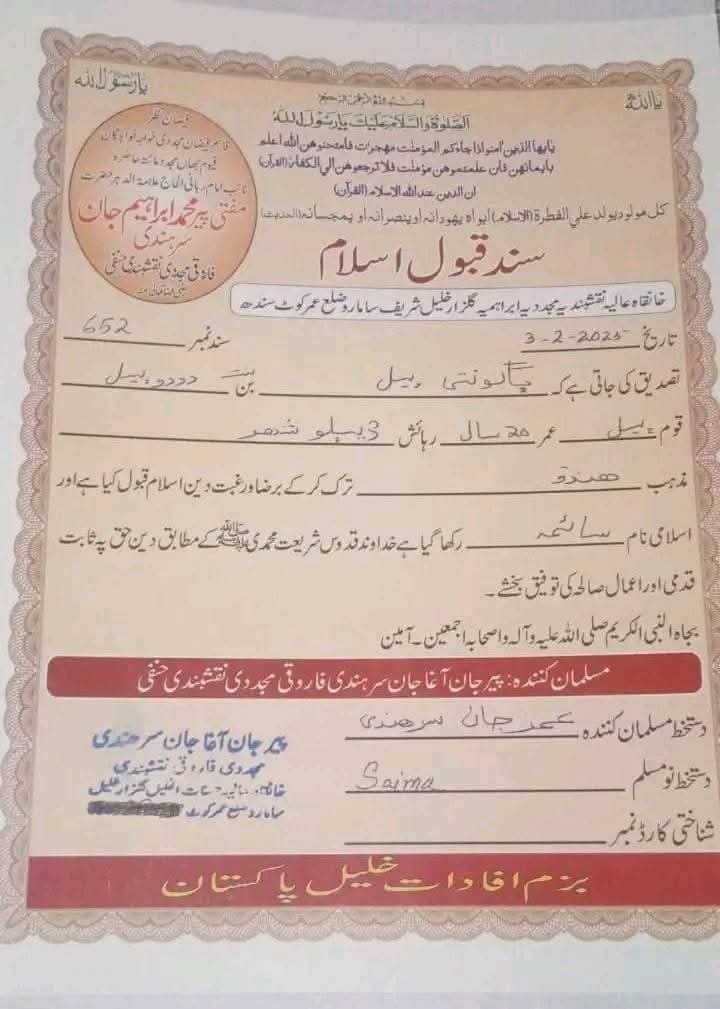 یا اللہ
یا رسول اللہ
بسم اللہ الرحمن الرحیم
الصلوٰۃ والسلام علیک یا رسول اللہ
یایها الذین امنوا اذا جاءکم المؤمنت مهجرات فامتحنوهن الله اعلم
بایمانهن فان علمتموهن مؤمنت فلا ترجعوهن الی الکفار (القرآن)
ان الدین عند الله الاسلام (القرآن)
کل مولود یولد علی الفطرة (الاسلام) ابواه یهودانه او ینصرانه او یمجسانه (الحدیث)
فیضان نظر
قیوم جہاں مجدد مائتہ حاضرہ
نائب امام ربانی الحاج علامۃ الدہر حضرت
مفتی پیر محمد ابراہیم جان
سرہندی
فاروقی مجددی نقشبندی حنفی
سند قبول اسلام
خانقاہ عالیہ نقشبندیہ مجددیہ ابراہیمیہ گلزار خلیل شریف سامارو ضلع عمر کوٹ سندھ
تاریخ 3-2-2025 سند نمبر 652
تصدیق کی جاتی ہے کہ بن
قوم عمر 20 سال رہائش ڈیپلو شهر
مذہب هندو ترک کر کے برضا و رغبت دین اسلام قبول کیا ہے اور
اسلامی نام سائمہ رکھا گیا ہے خداوند قدوس شریعت محمدی ﷺ کے مطابق دین حق پہ ثابت
قدمی اور اعمال صالحہ کی توفیق بخشے۔
بجاہ النبی الکریم صلی اللہ علیہ وآلہ واصحابہ اجمعین۔ آمین
مسلمان کنندہ: پیر جان آغا جان سرہندی فاروقی مجددی نقشبندی حنفی
دستخط مسلمان کنندہ عمر جان سرهندی
دستخط نو مسلم Saima
شناختی کارڈ نمبر
پیر جان آغا جان سرهندی
مجددی فاروقی نقشبندی
سامارو ضلع عمر کوٹ
بزم افادات خلیل پاکستان